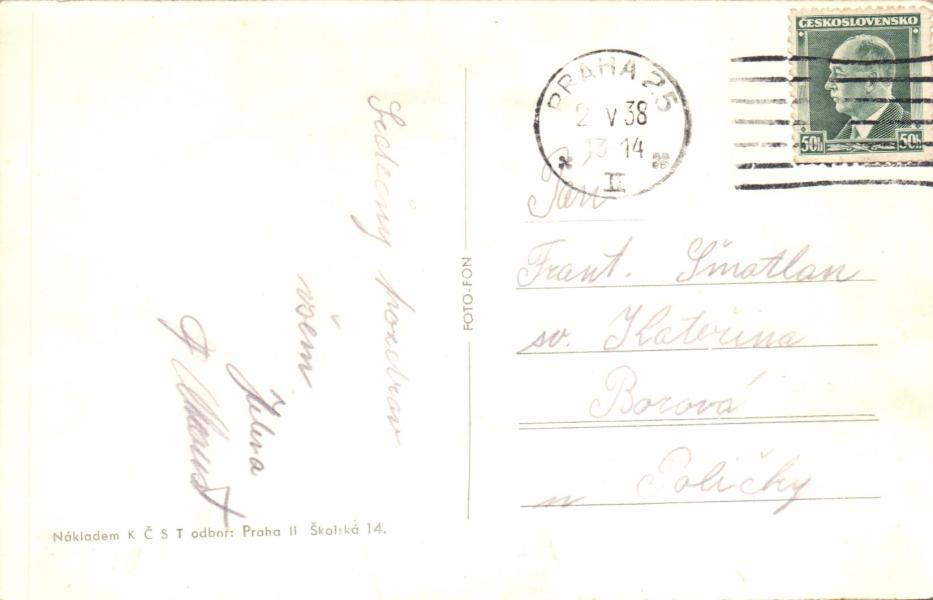 Srdečný pozdrav
všem
Jelena
FOTO-FON
Nákladem K Č S T odbor: Praha II Školská 14.
ČESKOSLOVENSKO
50h 50h
PRAHA 25
2 V 38
13 14
II
Pan
Frant. Šmatlan
sv. Kateřina
Borová
u Poličky